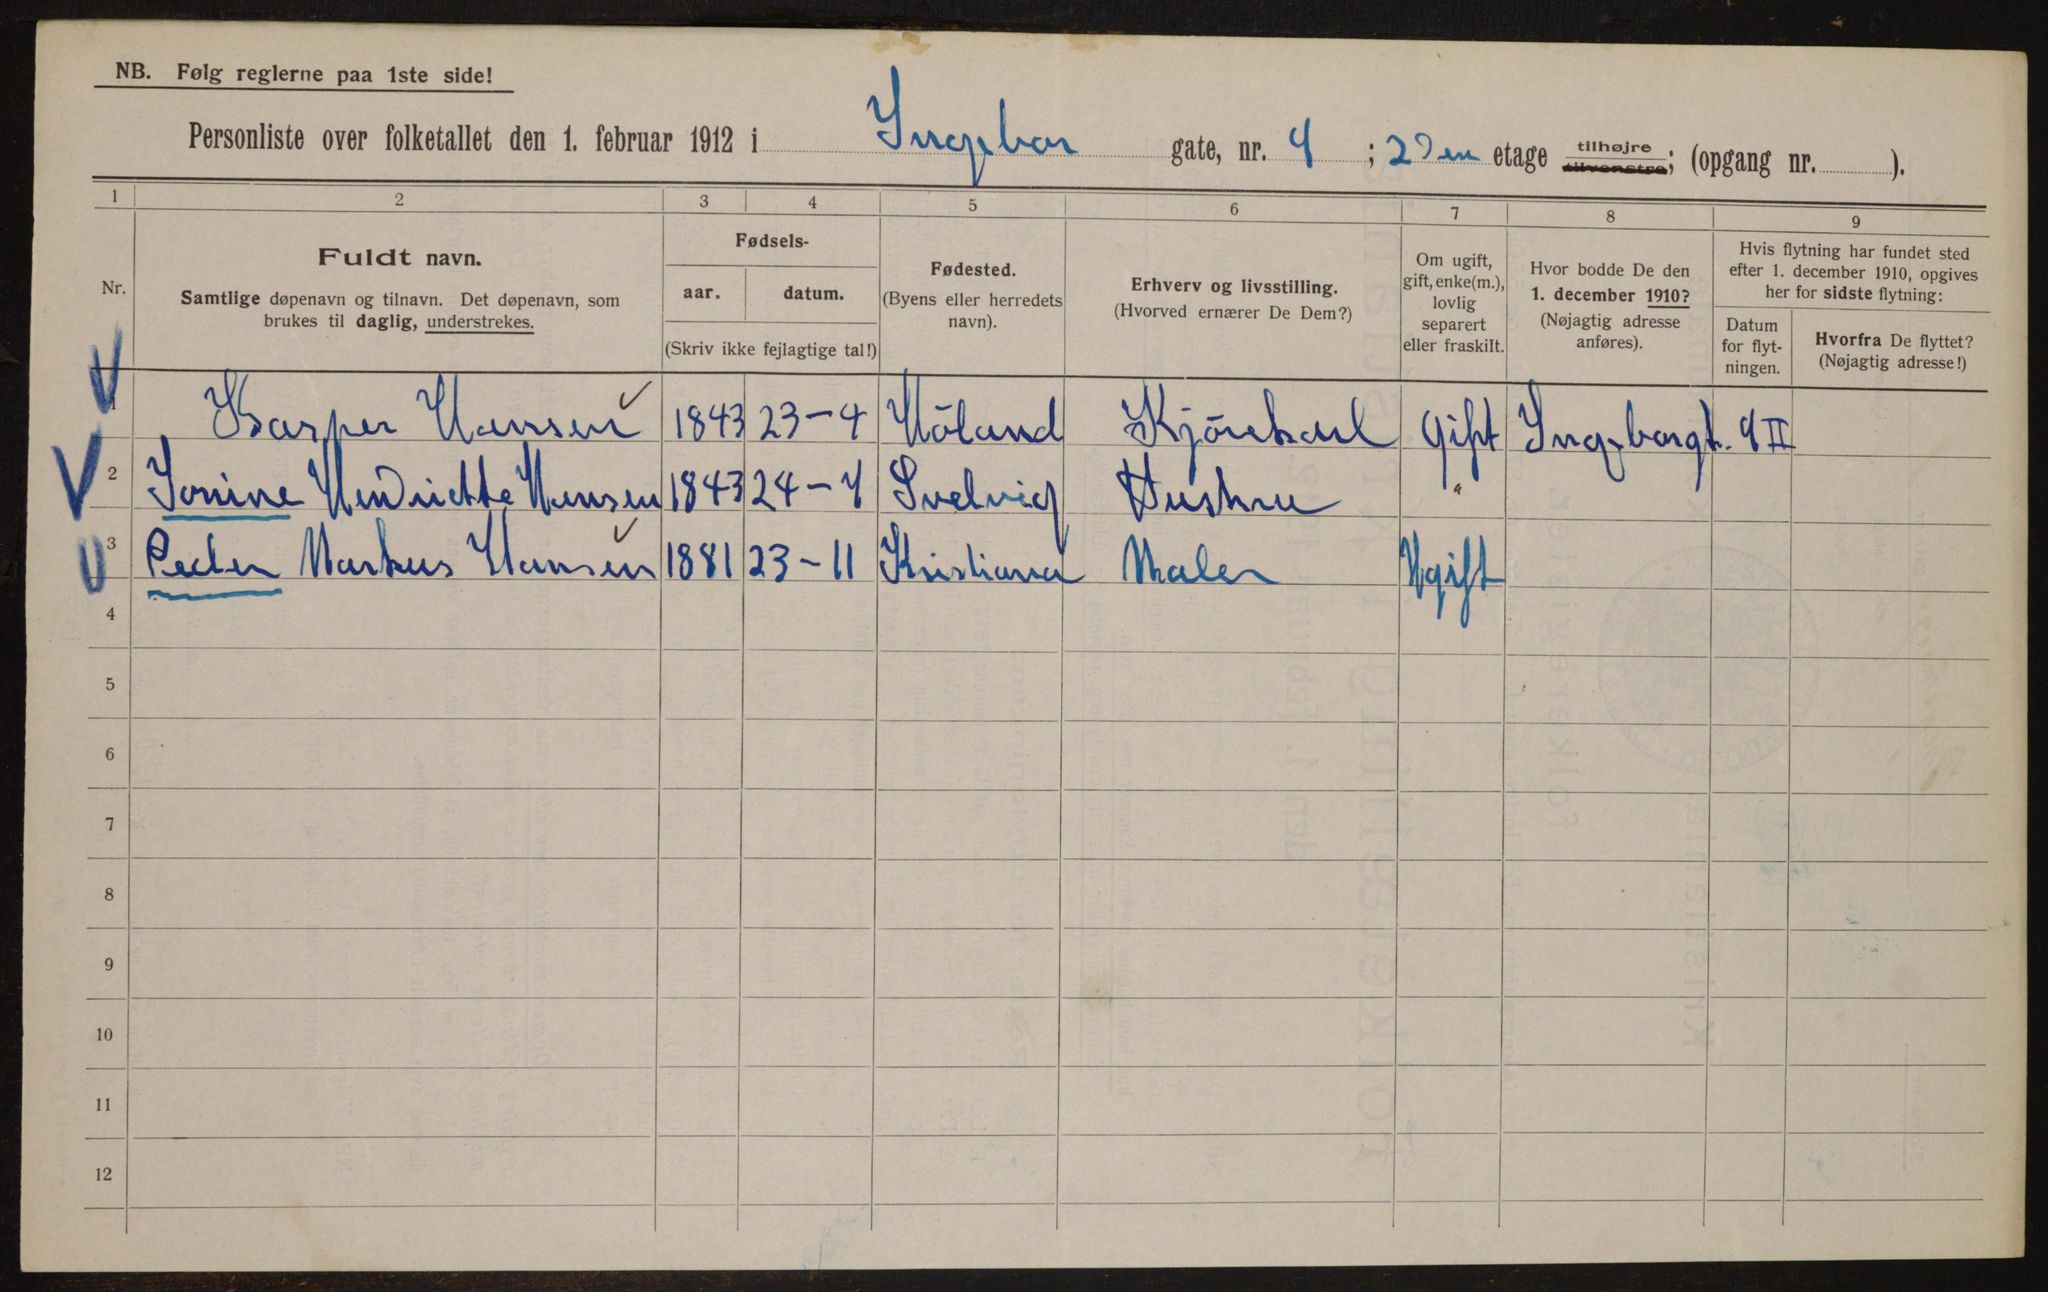 NB. Følg reglerne paa 1ste side!
Personliste over folketallet den 1. februar 1912 i Ingebor gate, nr. 4 ; 2den etage tilhøjre tilvenstre; (opgang nr. ).
1 2 3 4 5 6 7 8 9
Nr.
Fuldt navn.
Samtlige døpenavn og tilnavn. Det døpenavn, som
brukes til daglig, understrekes.
Fødsels-
aar. datum.
(Skriv ikke fejlagtige tal!)
Fødested.
(Byens eller herredets
navn).
Erhverv og livsstilling.
(Hvorved ernærer De Dem?)
Om ugift,
gift, enke(m.),
lovlig
separert
eller fraskilt.
Hvor bodde De den
1. december 1910?
(Nøjagtig adresse
anføres).
Hvis flytning har fundet sted
efter 1. december 1910, opgives
her for sidste flytning:
Datum
for flyt-
ningen.
Hvorfra De flyttet?
(Nøjagtig adresse!)
1 Kasper Hansen 1843 23-4 Höland Kjörekarl Gift Ingeborgt. 4 II
2 Jonine Hendriette Hansen 1843 24-4 Svelvig Hustru "
3 Peder Markus Hansen 1881 23-11 Kristiana Maler Ugift
4
5
6
7
8
9
10
11
12